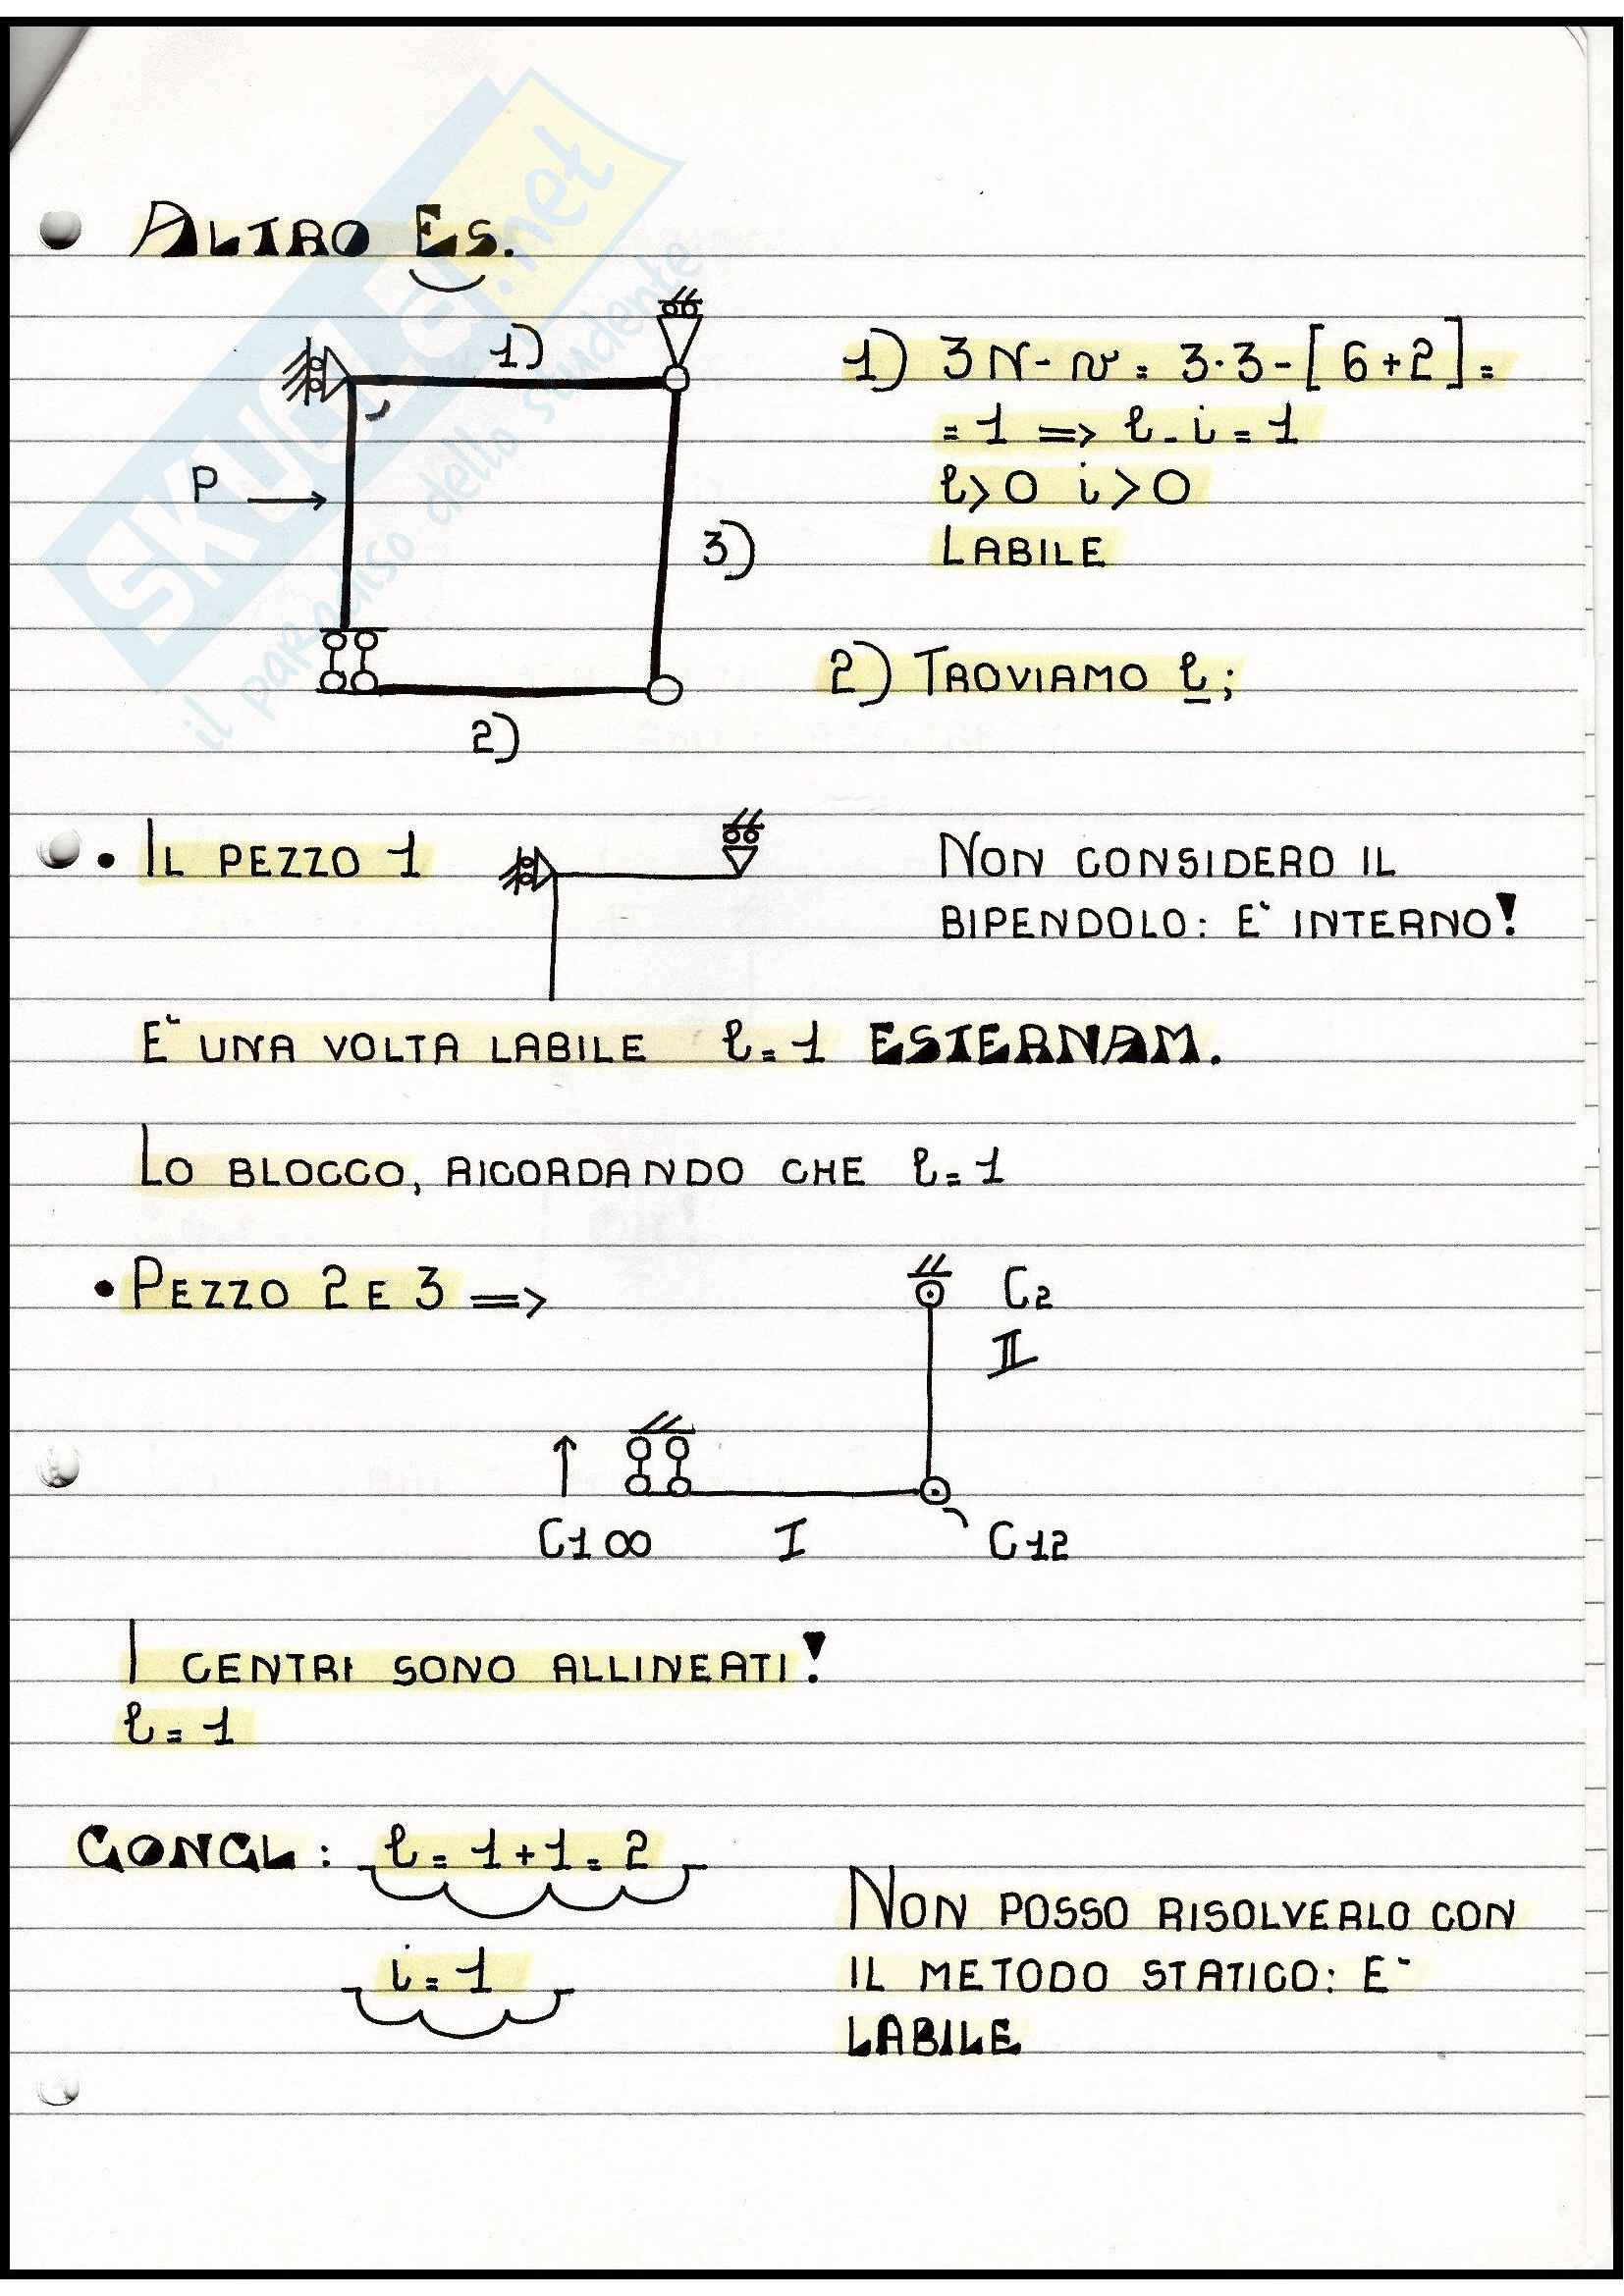 ALTRO ES.
1)
P
3)
2)
1) 3N-v = 3·3-[6+2] =
= 1 => l-i = 1
l>0 i>0
LABILE
2) TROVIAMO l;
• IL PEZZO 1
NON CONSIDERO IL
BIPENDOLO: E` INTERNO!
E` UNA VOLTA LABILE l=1 ESTERNAM.
LO BLOCCO, RICORDANDO CHE l=1
• PEZZO 2 E 3 =>
C2
II
C1∞
I
C12
I CENTRI SONO ALLINEATI!
l=1
CONCL: l=1+1=2
i=1
NON POSSO RISOLVERLO CON
IL METODO STATICO: E`
LABILE
SKUOLA.net
il paradiso dello studente